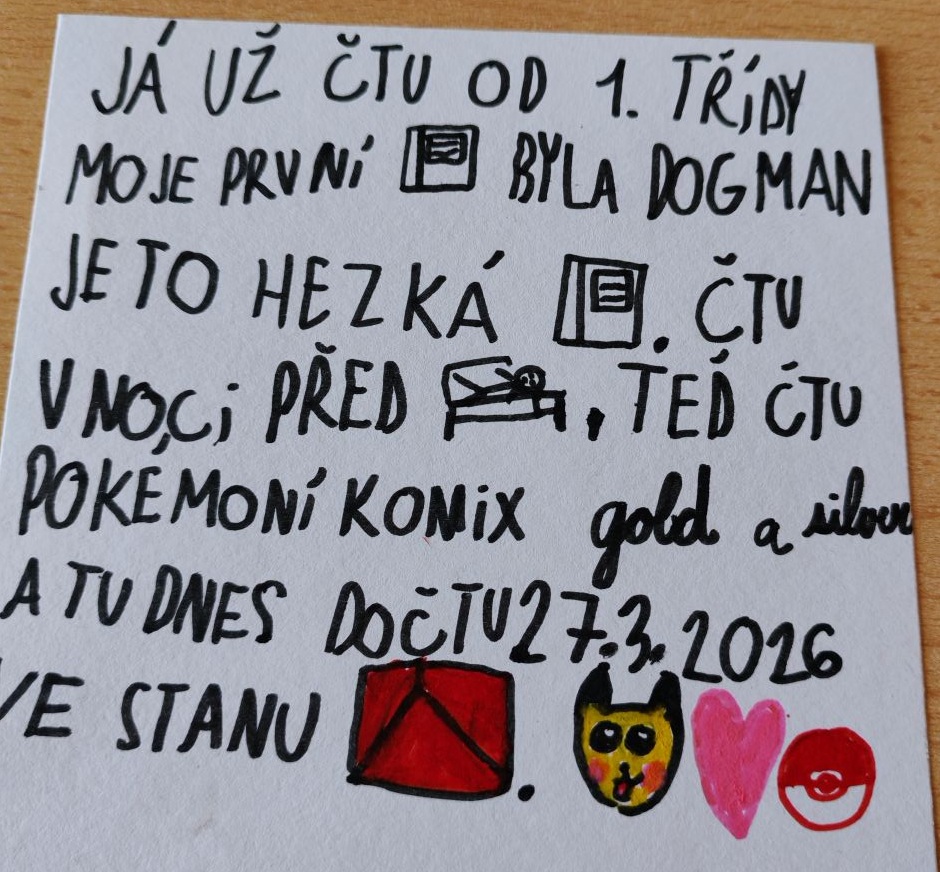 JÁ UŽ ČTU OD 1. TŘÍDY
MOJE PRVNÍ BYLA DOGMAN
JE TO HEZKÁ . ČTU
V NOCI PŘED . TEĎ ČTU
POKÉMONÍ KOMIX gold a silver
A TU DNES DOČTU 27.3.2026
VE STANU .